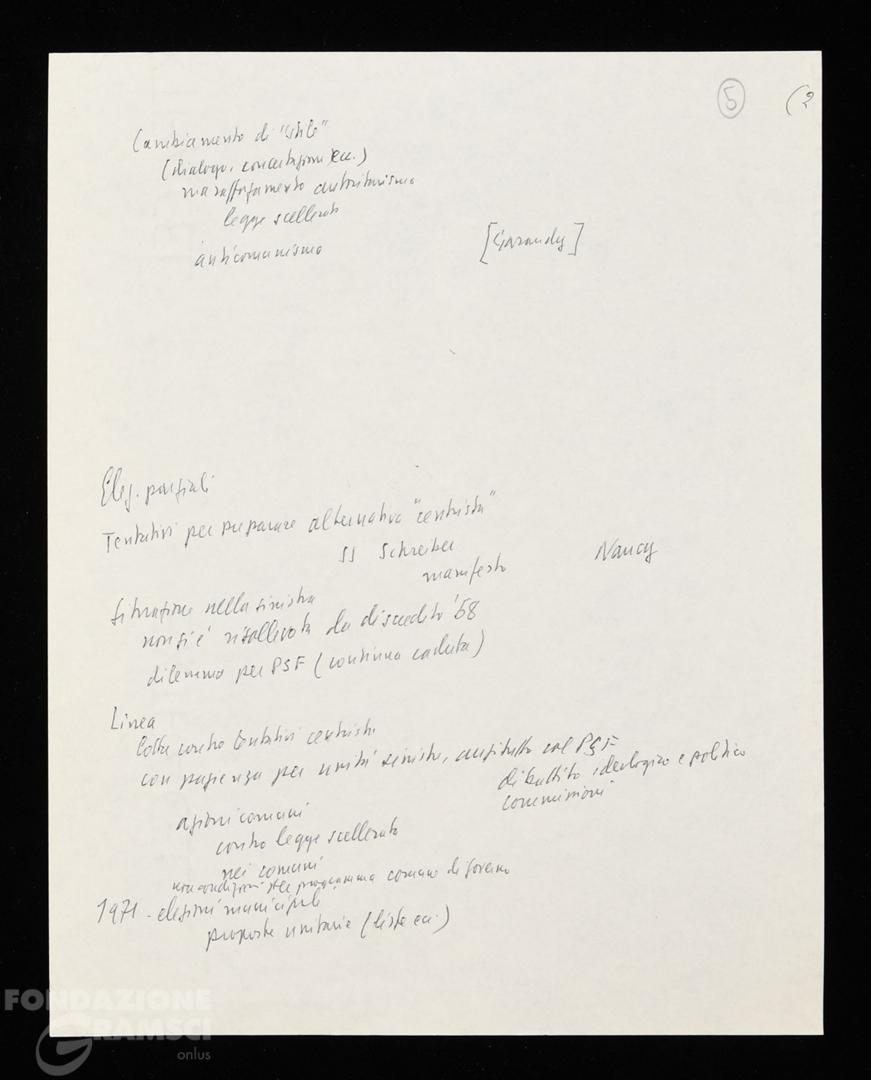 5
(2
Cambiamento di "stile"
(dialogo, concertazioni ecc.)
ma rafforzamento autoritarismo
legge scellerata
anticomunismo
[Garaudy]
Elez. parziali
Tentativi per preparare alternativa "centrista"
SS Schreiber
Nancy
manifesto
Situazione nella sinistra
non si è risollevata da discredito '68
dilemma per PSF (continua caduta)
Linea
lotta contro tentativi centristi
con pazienza per unità sinistra, anzitutto col PSF
dibattito ideologico e politico
commissioni
azioni comuni
contro legge scellerata
nei comuni
non condizioni per programma comune di governo
1971 - elezioni municipali
proposte unitarie (liste ecc.)
FONDAZIONE
GRAMSCI
onlus